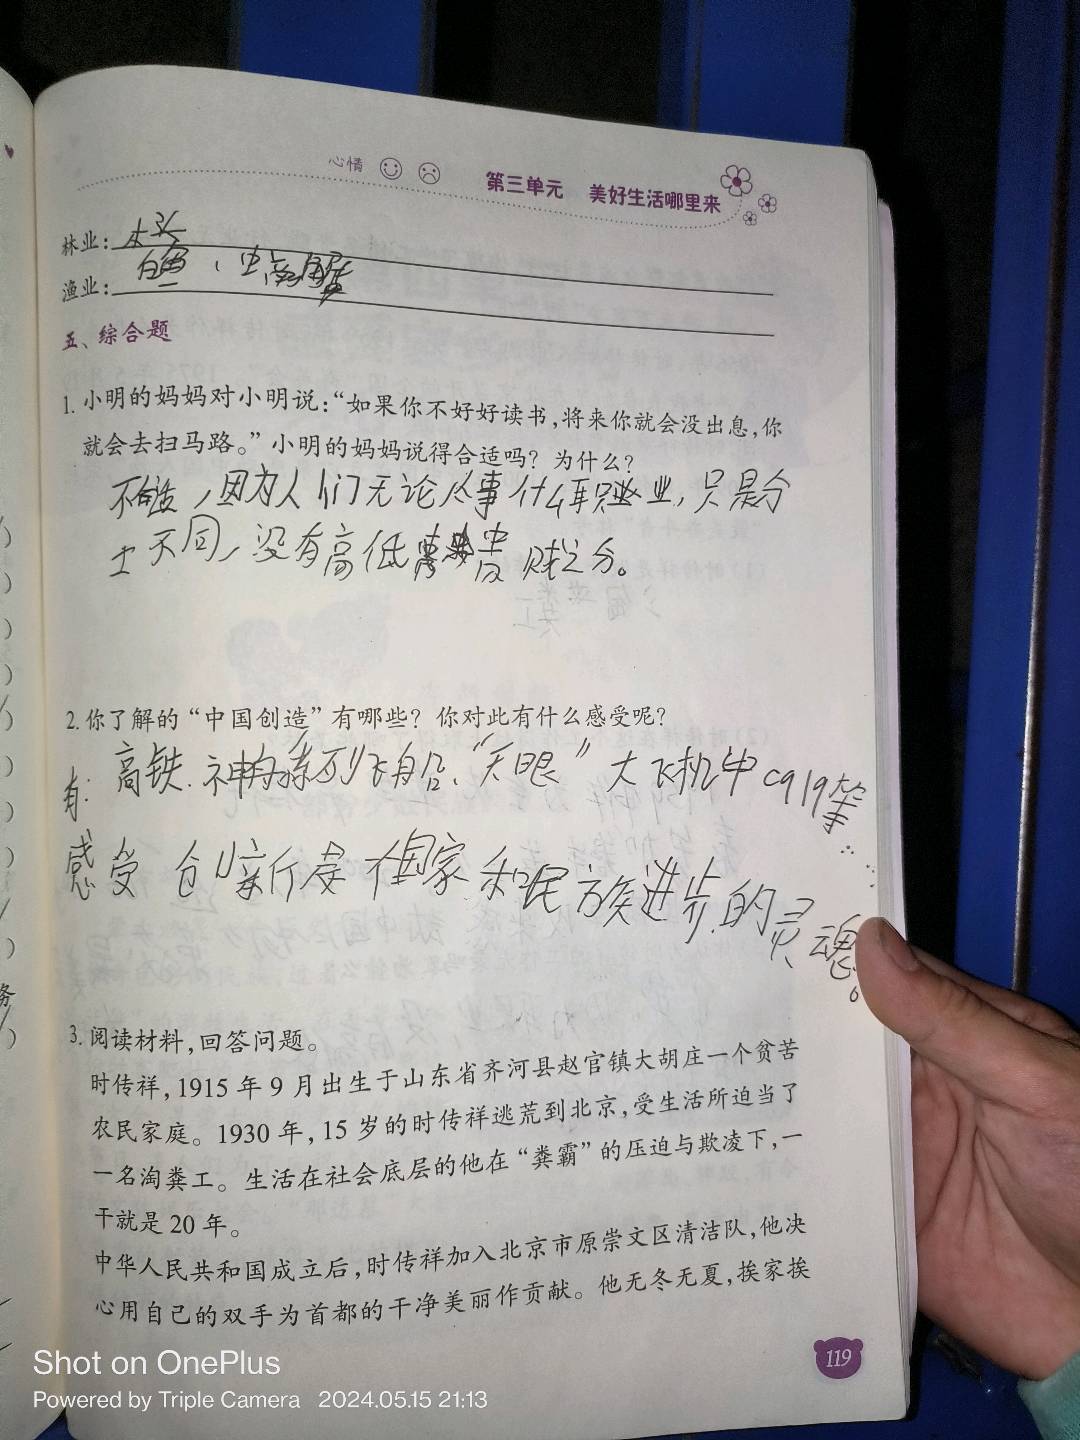 心情
第三单元 美好生活哪里来
林业：木头
渔业：白鱼、虫虾蟹
五、综合题
1. 小明的妈妈对小明说：“如果你不好好读书，将来你就会没出息，你
就会去扫马路。”小明的妈妈说得合适吗？为什么？
不合适，因为人们无论从事什么职业，只是分
工不同，没有高低贵贱之分。
2. 你了解的“中国创造”有哪些？你对此有什么感受呢？
有：高铁、神舟系列飞船、“天眼”大飞机中c919等……
感受 创新是国家和民族进步的灵魂。
3. 阅读材料，回答问题。
时传祥，1915年9月出生于山东省齐河县赵官镇大胡庄一个贫苦
农民家庭。1930年，15岁的时传祥逃荒到北京，受生活所迫当了
一名淘粪工。生活在社会底层的他在“粪霸”的压迫与欺凌下，一
干就是20年。
中华人民共和国成立后，时传祥加入北京市原崇文区清洁队，他决
心用自己的双手为首都的干净美丽作贡献。他无冬无夏，挨家挨
119
Shot on OnePlus
Powered by Triple Camera 2024.05.15 21:13